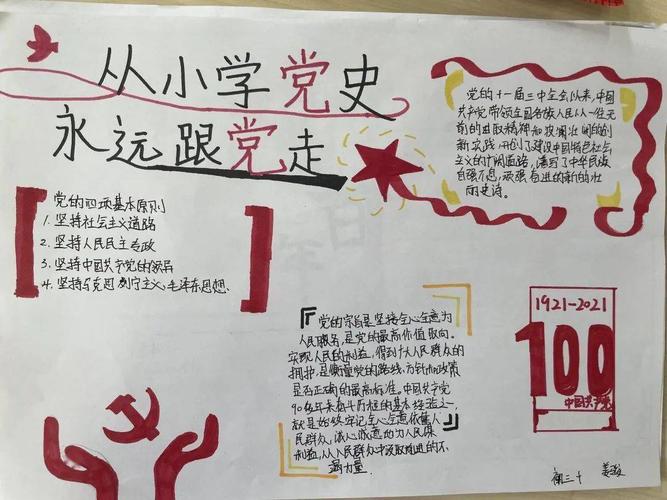 从小学党史
永远跟党走
党的十一届三中全会以来,中国
共产党带领全国各族人民以一往无
前的进取精神和波澜壮阔的创
新实践,开创了建设中国特色社会
主义的广阔道路,谱写了中华民族
自强不息、顽强奋进的新的壮
丽史诗。
党的四项基本原则
1. 坚持社会主义道路
2. 坚持人民民主专政
3. 坚持中国共产党的领导
4. 坚持马克思列宁主义、毛泽东思想.
党的宗旨是坚持全心全意为
人民服务,是党的最高价值取向。
实现人民的利益,得到广大人民群众的
拥护,是衡量党的路线,方针和政策
是否正确的最高标准。中国共产党
90多年来奋斗历程的基本经验之一
就是始终牢记全心全意依靠人
民群众,诚心诚意地为人民谋
利益,从人民群众中汲取前进的不
竭力量.
1921-2021
100
中国共产党
初三十